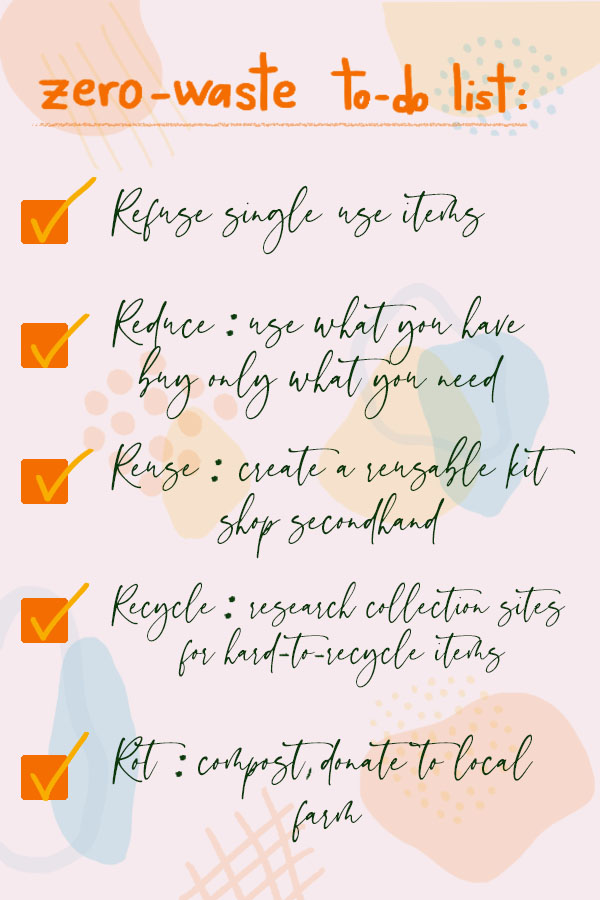 zero-waste to-do list:
Refuse single use items
Reduce : use what you have
buy only what you need
Reuse : create a reusable kit
shop secondhand
Recycle : research collection sites
for hard-to-recycle items
Rot : compost, donate to local
farm